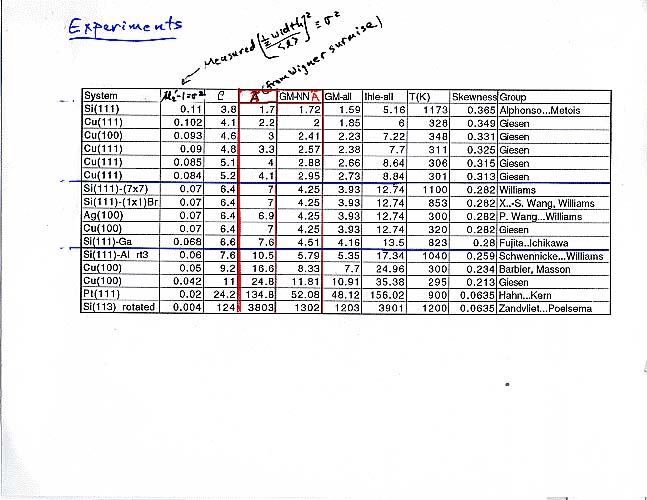 Experiments
Measured [½ width / <ℓ>]² = σ²
(from Wigner surmise)
System μ₂'-1=σ² ϱ Ã GM-NN Ã GM-all Ihle-all T(K) Skewness Group
Si(111) 0.11 3.8 1.7 1.72 1.59 5.16 1173 0.365 Alphonso...Metois
Cu(111) 0.102 4.1 2.2 2 1.85 6 328 0.349 Giesen
Cu(100) 0.093 4.6 3 2.41 2.23 7.22 348 0.331 Giesen
Cu(111) 0.09 4.8 3.3 2.57 2.38 7.7 311 0.325 Giesen
Cu(111) 0.085 5.1 4 2.88 2.66 8.64 306 0.315 Giesen
Cu(111) 0.084 5.2 4.1 2.95 2.73 8.84 301 0.313 Giesen
Si(111)-(7x7) 0.07 6.4 7 4.25 3.93 12.74 1100 0.282 Williams
Si(111)-(1x1)Br 0.07 6.4 7 4.25 3.93 12.74 853 0.282 X.-S. Wang, Williams
Ag(100) 0.07 6.4 6.9 4.25 3.93 12.74 300 0.282 P. Wang...Williams
Cu(100) 0.07 6.4 7 4.25 3.93 12.74 320 0.282 Giesen
Si(111)-Ga 0.068 6.6 7.6 4.51 4.16 13.5 823 0.28 Fujita..Ichikawa
Si(111)-Al rt3 0.06 7.6 10.5 5.79 5.35 17.34 1040 0.259 Schwennicke...Williams
Cu(100) 0.05 9.2 16.6 8.33 7.7 24.96 300 0.234 Barbier, Masson
Cu(100) 0.042 11 24.8 11.81 10.91 35.38 295 0.213 Giesen
Pt(111) 0.02 24.2 134.8 52.08 48.12 156.02 900 0.0635 Hahn...Kern
Si(113) rotated 0.004 124 3803 1302 1203 3901 1200 0.0635 Zandvliet...Poelsema